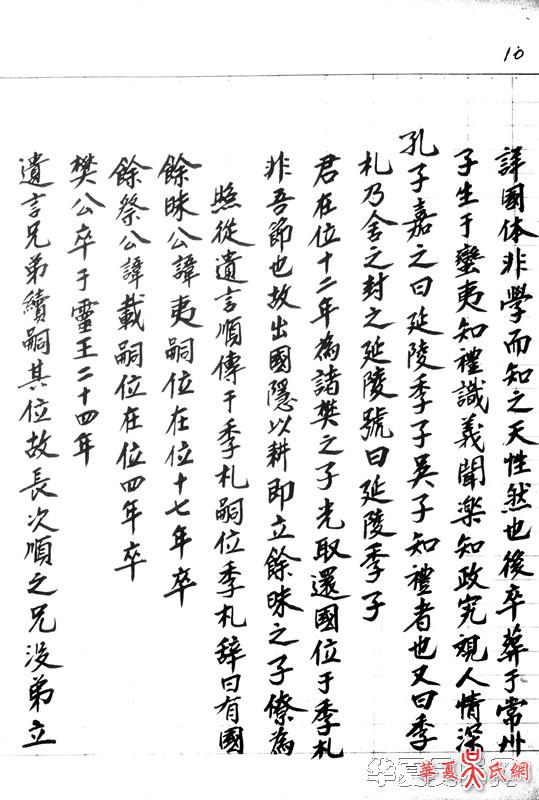 10
遺言兄弟續嗣其位故長次順之兄没弟立
樊公卒于靈王二十四年
餘祭公諱載嗣位在位四年卒
餘昧公諱夷嗣位在位十七年卒
照從遺言順傳于季札嗣位季札辞曰有國
非吾節也故出國隱以耕即立餘昧之子僚為
君在位十二年為諸樊之子光取還國位于季札
札乃舍之封之延陵號曰延陵季子
孔子嘉之曰延陵季子吳子知禮者也又曰季
子生于蠻夷知禮識義聞楽知政究覌人情深
詳國体非學而知之天性然也後卒葬于常州
華夏吳氏網